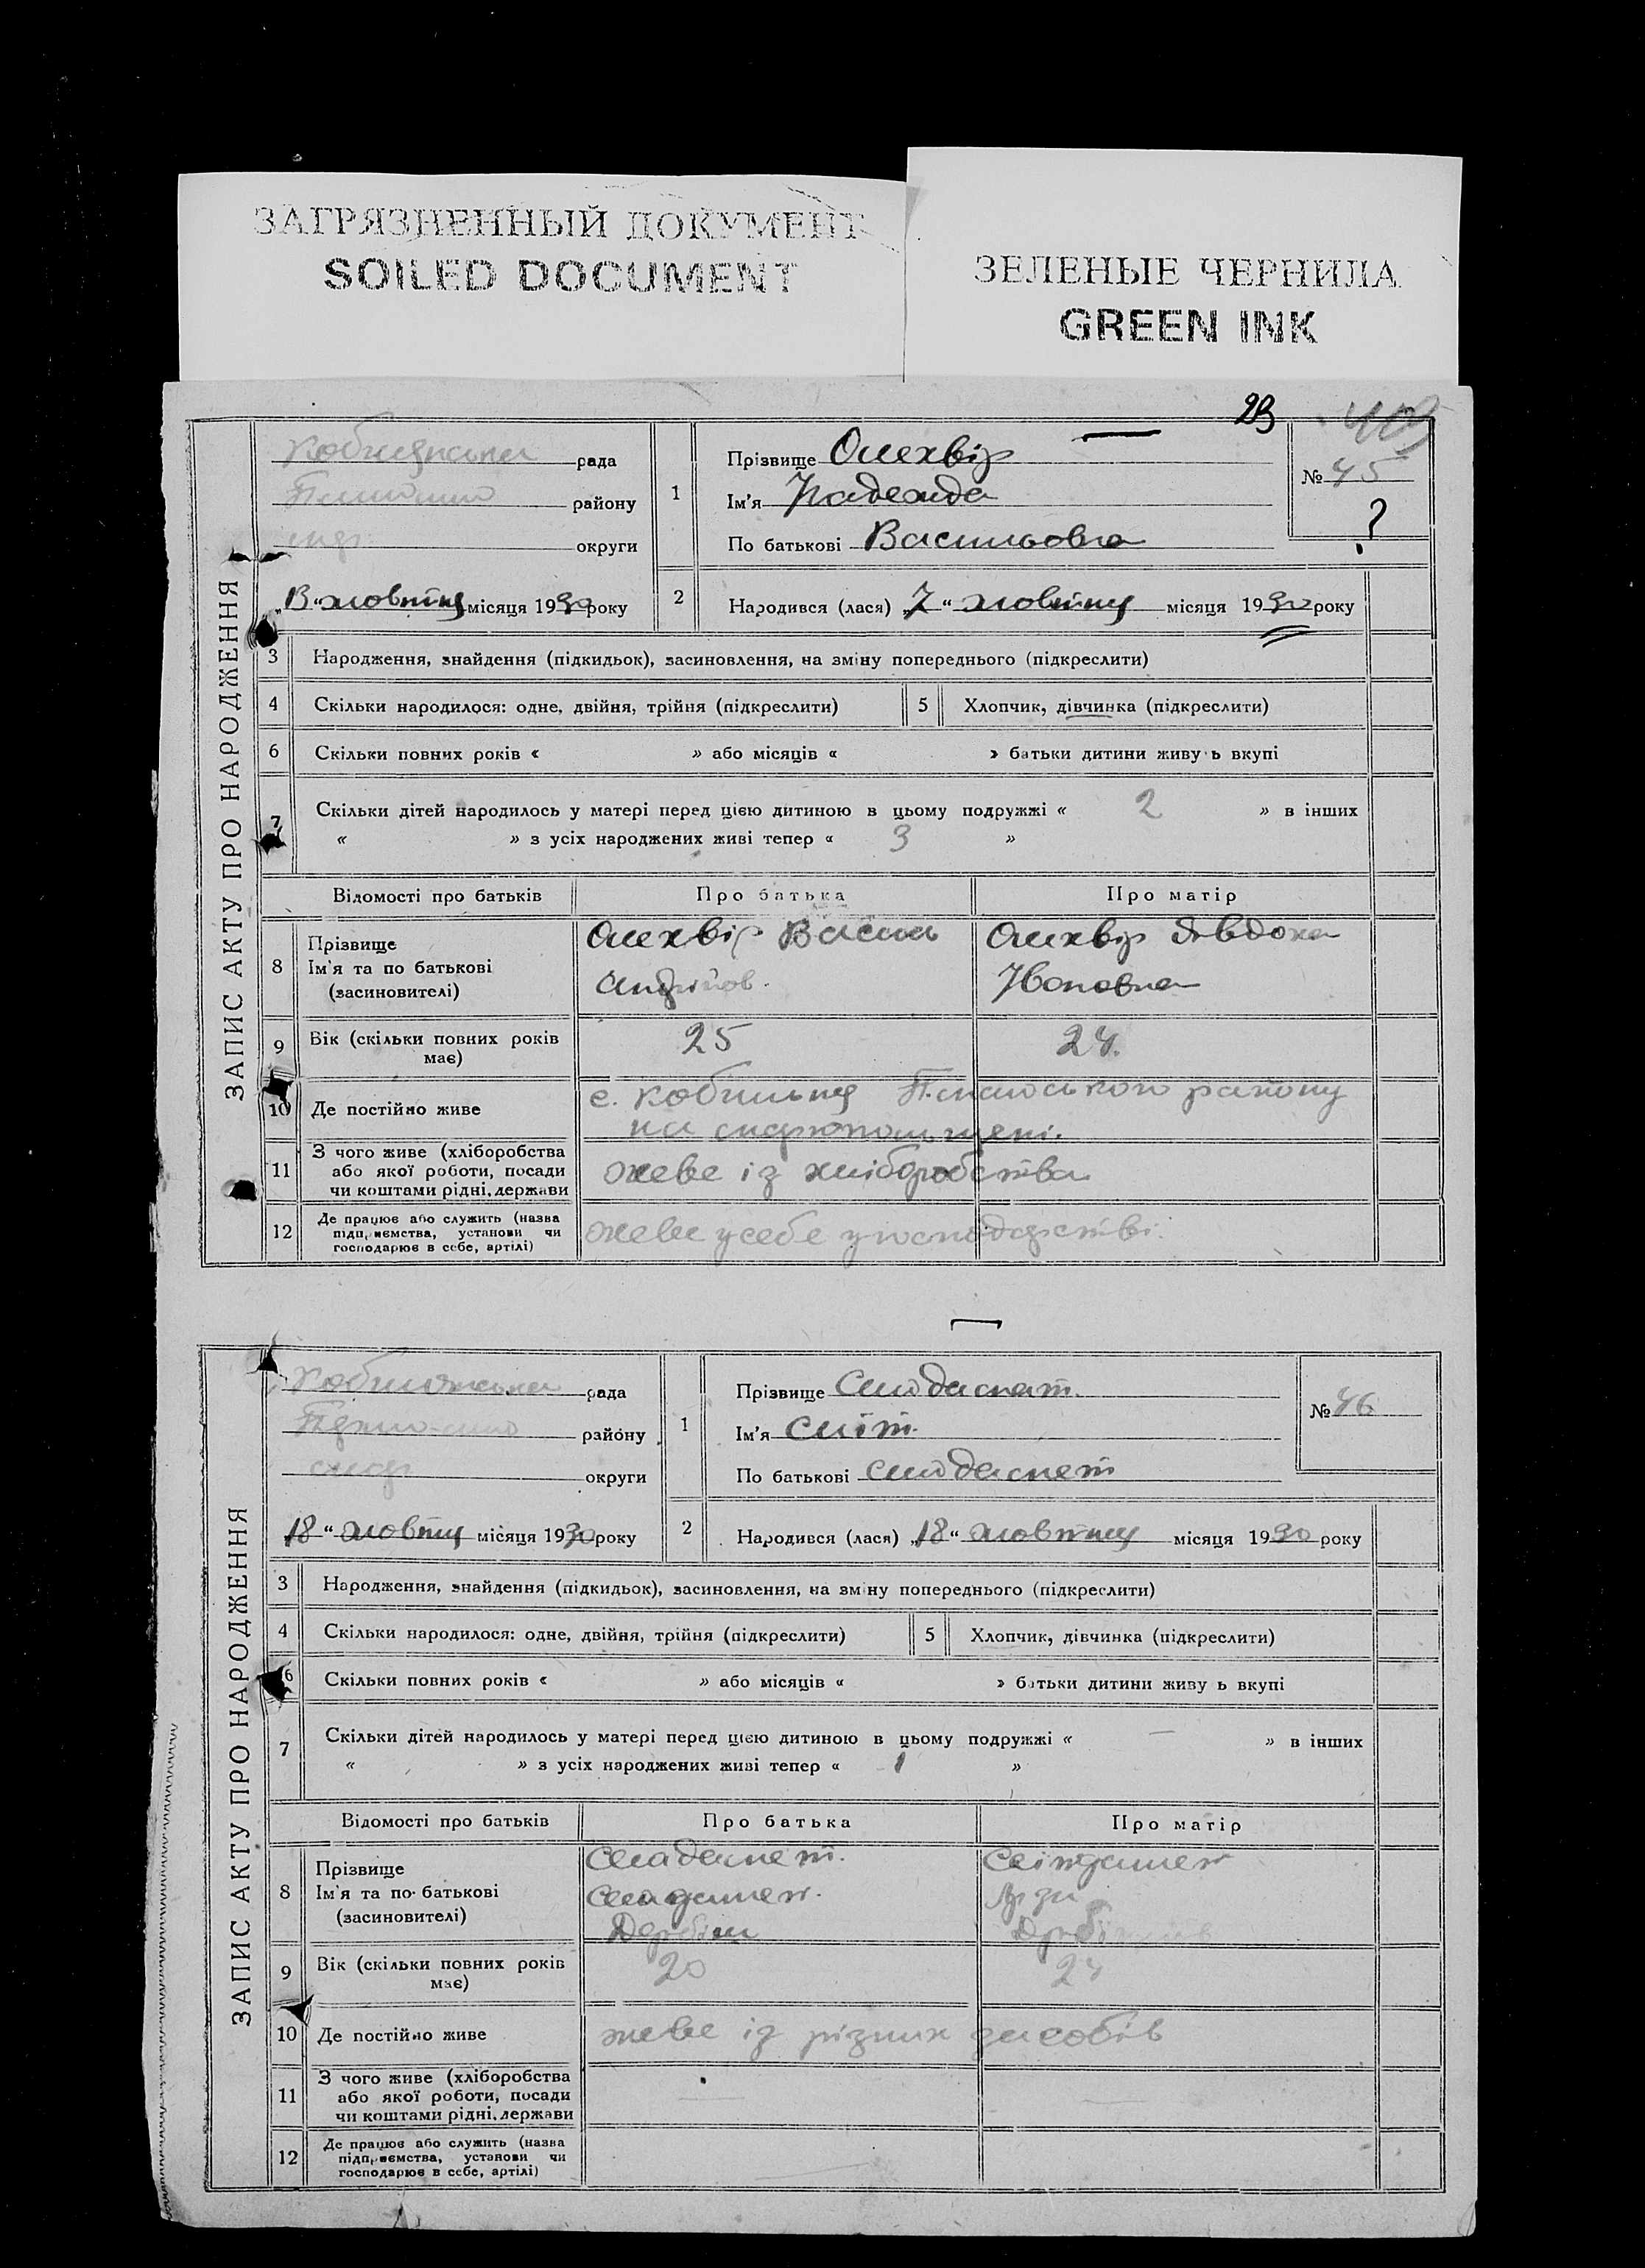 ЗАГРЯЗНЕННЫЙ ДОКУМЕНТ
SOILED DOCUMENT
ЗЕЛЕНЫЕ ЧЕРНИЛА
GREEN INK
ЗАПИС АКТУ ПРО НАРОДЖЕННЯ
рада
району
округи
місяця 1930 року
1
Прізвище Олехвір
Ім'я Надежда
По батькові Васильовна
№ 45
?
2
Народився (лася) „7“ жовтня місяця 1930 року
3 Народження, знайдення (підкидьок), засиновлення, на зміну попереднього (підкреслити)
4 Скільки народилося: одне, двійня, трійня (підкреслити) 5 Хлопчик, дівчинка (підкреслити)
6 Скільки повних років « » або місяців « » батьки дитини живу ь вкупі
7 Скільки дітей народилось у матері перед цією дитиною в цьому подружжі « 2 » в інших
« » з усіх народжених живі тепер « 3 »
Відомості про батьків Про батька Про матір
8 Прізвище
Ім'я та по батькові
(засиновителі)
Олехвір Василь
Андрійов.
Олехвір Явдоха
Ивановна
9 Вік (скільки повних років має) 25 24.
10 Де постійно живе с. Кобильня району
11 З чого живе (хліборобства
або якої роботи, посади
чи коштами рідні, держави
живе із хліборобства
12 Де працює або служить (назва
підприємства, установи чи
господарює в себе, артілі)
живе у себе у господарстві.
ЗАПИС АКТУ ПРО НАРОДЖЕННЯ
рада
району
округи
18 “ жовтня місяця 1930 року
1
Прізвище
Ім'я
По батькові
№ 46
2
Народився (лася) „18“ жовтня місяця 1930 року
3 Народження, знайдення (підкидьок), засиновлення, на зміну попереднього (підкреслити)
4 Скільки народилося: одне, двійня, трійня (підкреслити) 5 Хлопчик, дівчинка (підкреслити)
6 Скільки повних років « » або місяців « » батьки дитини живу ь вкупі
7 Скільки дітей народилось у матері перед цією дитиною в цьому подружжі « — » в інших
« » з усіх народжених живі тепер « 1 »
Відомості про батьків Про батька Про матір
8 Прізвище
Ім'я та по батькові
(засиновителі)
9 Вік (скільки повних років має) 20 24
10 Де постійно живе живе із різних засобів
11 З чого живе (хліборобства
або якої роботи, посади
чи коштами рідні, держави
12 Де працює або служить (назва
підприємства, установи чи
господарює в себе, артілі)